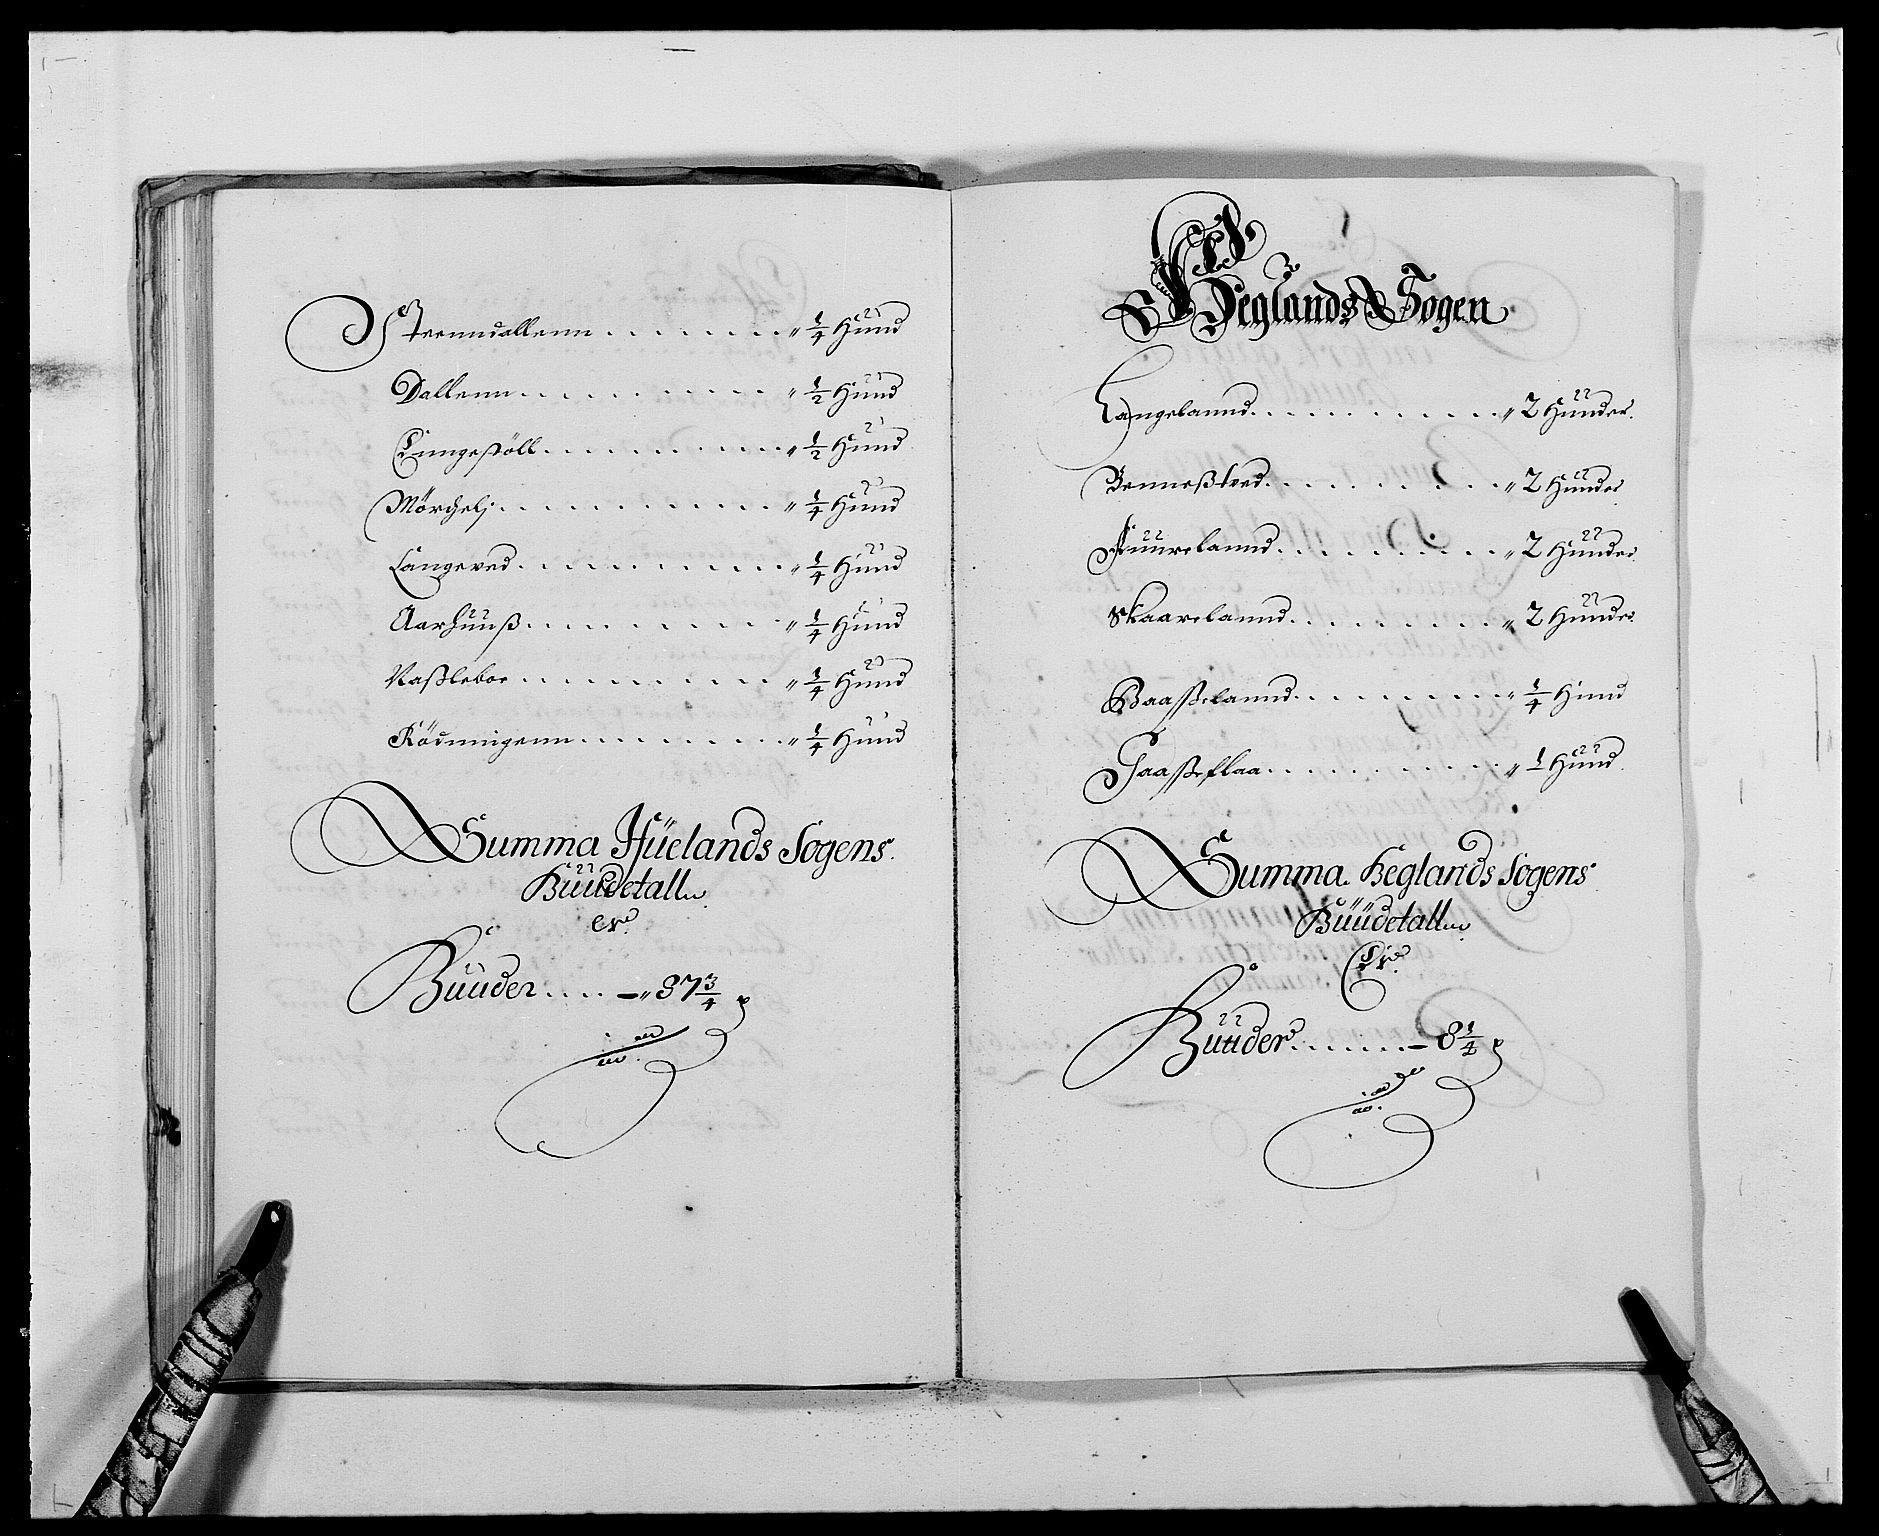 Strenndallenn . . . . . . . " 1/4 Hund
Dallenn . . . . . . . . . . " 1/2 Hund
Lingestöll . . . . . . . . . " 1/2 Hund
Mörchelj . . . . . . . . . . " 1/4 Hund
Langeved . . . . . . . . . . " 1/4 Hund
Aarhuuß . . . . . . . . . . " 1/4 Hund
Vaßleboe . . . . . . . . . " 1/4 Hund
Rödningenn . . . . . . . . " 1/4 Hund
Summa Hüelands Sogens
Huudetall
er
Huuder . . . . - " 87 3/4
Heglands Sogen
Langelannd . . . . . . . . . " 2 Hunder
Bennestved . . . . . . . . . " 2 Hunder
Fuurelannd . . . . . . . . " 2 Hunder
Skaarelannd . . . . . . . . " 2 Hunder
Baasselannd . . . . . . . . " 1/4 Hund
Gaasseflaa . . . . . . . . . " 1 Hund
Summa Heglands Sogens
Huudetall
Er
Huuder . . . . . . - 8 1/4